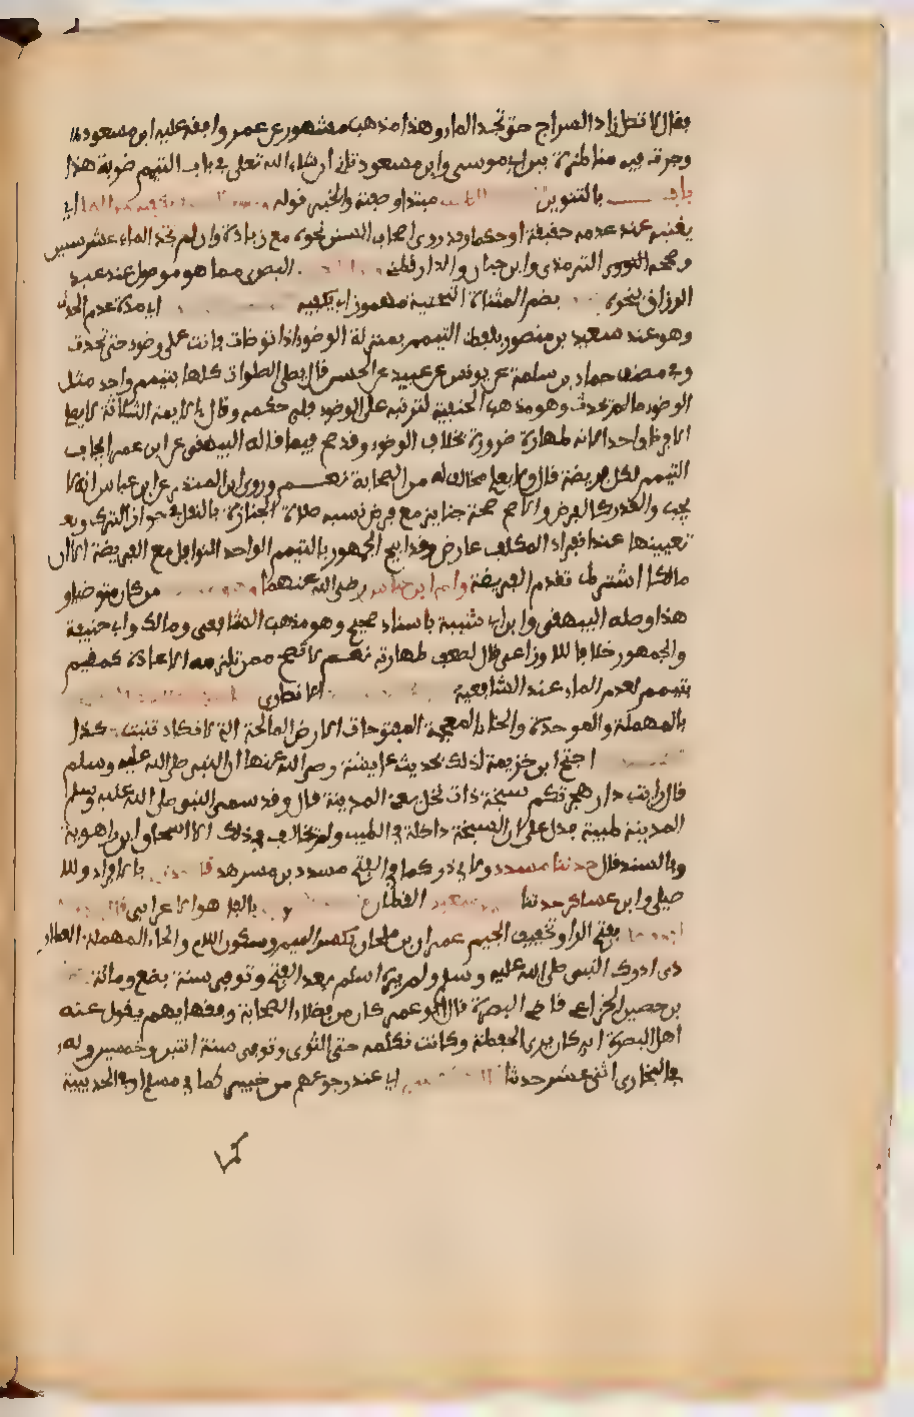 فقال لا تصل زاد السراج حتى تجد الماء وهذا مذهب مشهور عن عمر وافقه عليه ابن مسعود
وجرت فيه مناظرة بين ابي موسى وابن مسعود تاتي ان شاء الله تعلى في باب التيمم ضربة هذا
باب بالتنوين مبتدا وصفته والخبر قوله اي
يغنيه عند عدمه حقيقة او حكما وقد روى اصحاب السنن نحوه مع زيادة وان لم تجد الماء عشر سنين
وصححه الترمذي وابن حبان والدارقطني البصري مما هو موصول عند عبد
الرزاق بنحوه بضم المثناة التحتية مهموزا اي يكفيه اي مدة عدم الحدث
وهو عند سعيد بن منصور بلفظ التيمم بمنزلة الوضوء اذا توضات فانت على وضوء حتى تحدث
وفي مصنف حماد بن سلمة عن يونس عن عبيد عن الحسن قال يصلى الصلوات كلها بتيمم واحد مثل
الوضوء ما لم تحدث وهو مذهب الحنفية لترتبه على الوضوء فله حكمه وقال الايمة الثلاثة لا يصلى
الا فرضا واحدا لانه طهارة ضرورة بخلاف الوضوء وقد صح فيما قاله البيهقي عن ابن عمر ايجاب
التيمم لكل فريضة قال ولا يعلم مخالف له من الصحابة نعم وروى ابن المنذر عن ابن عباس انه لا
يجب والنذر كالفرض والاصح صحة جنايز مع فرض لشبه صلاة الجنازة بالنفل في جواز الترك
تعيينها عند انفراد المكلف عارض وقد ابيح الجمهور بالتيمم الواحد النوافل مع الفريضة الا ان
مالكا اشترط تقدم الفريضة وام ابن عباس رضي الله عنهما من كان متوضيا و
هذا وصله البيهقي وابن ابي شيبة باسناد صحيح وهو مذهب الشافعي ومالك وابي حنيفة
والجمهور خلافا للاوزاعي قال لضعف طهارته نعم لا تصح ممن تلزمه الاعادة كمقيم
تيمم لعدم الماء عند الشافعية
بالمهملة والموحدة والخاء المعجمة المفتوحات الارض المالحة التي لا تكاد تنبت كذا
احتج ابن خزيمة لذلك بحديث عايشة رضي الله عنها ان النبي صلى الله عليه وسلم
قال رايت دار هجرتكم سبخة ذات نخل يعني المدينة قال وقد سمى النبي صلى الله عليه وسلم
المدينة طيبة فدل على ان السبخة داخلة في الطيب ولم يخالف في ذلك الا اسحاق ابن راهوية
وبالسند قال حدثنا مسدد ولابي ذر كما في الفتح مسدد بن مسرهد بالافراد وللا
صيلى وابن عساكر حدثنا سعيد القطان هو الاعرابي
بفتح الراء وتخفيف الجيم عمران بن ملحان بكسر الميم وسكون اللام والحاء المهملة العطار
دي ادرك النبي صلى الله عليه وسلم ولم يره اسلم بعد الفتح وتوفي سنة بضع ومائة
بن حصين الخزاعي قاضي البصرة قال ابو عمر كان من فضلاء الصحابة وفقهايهم يقول عنه
اهل البصرة انه كان يرى الحفظة وكانت تكلمه حتى اكتوى وتوفي سنة اثنين وخمسين وله
في البخاري اثنى عشر حديثا اي عند رجوعهم من خيبر كما في مسلم او في الحديبية
كما